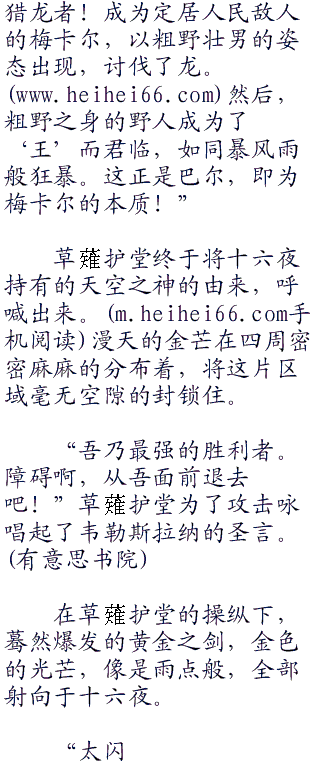 猎龙者！成为定居人民敌人
的梅卡尔，以粗野壮男的姿
态出现，讨伐了龙。
(www.heihei66.com)然后，
粗野之身的野人成为了
‘王’而君临，如同暴风雨
般狂暴。这正是巴尔，即为
梅卡尔的本质！”
草薙护堂终于将十六夜
持有的天空之神的由来，呼
喊出来。(m.heihei66.com手
机阅读)漫天的金芒在四周密
密麻麻的分布着，将这片区
域毫无空隙的封锁住。
“吾乃最强的胜利者。
障碍啊，从吾面前退去
吧！”草薙护堂为了攻击咏
唱起了韦勒斯拉纳的圣言。
(有意思书院)
在草薙护堂的操纵下，
蓦然爆发的黄金之剑，金色
的光芒，像是雨点般，全部
射向于十六夜。
“太闪